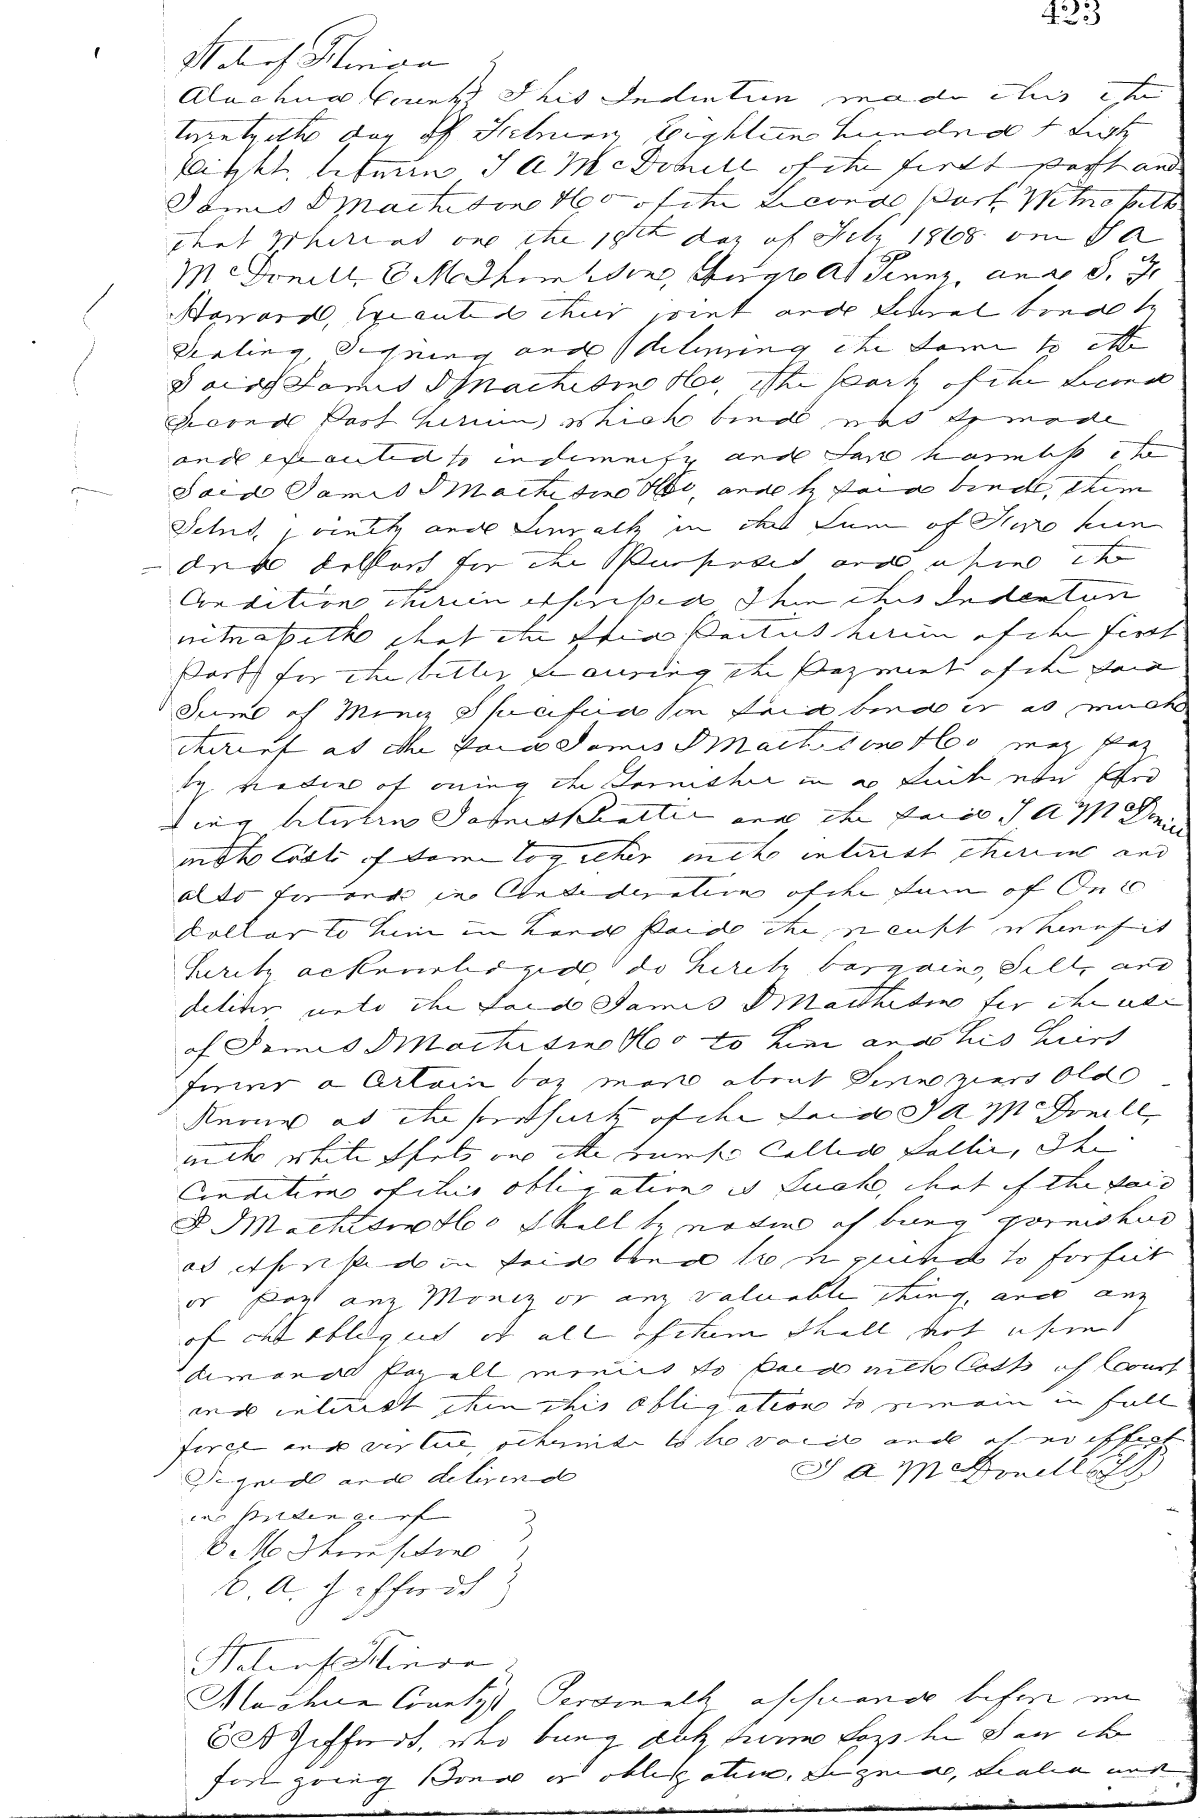 423
State of Florida
Alachua County This Indenture made this the
twentyeth day of February Eighteen hundred & Sixty
Eight, between J A McDonell of the first part and
James D Matheson & Co of the Second part, Witnesseth
that Whereas on the 18th day of Feby 1868 one J A
McDonell, C M Thompson, George A Penny, and S. F.
Howard, Executed their joint and Several bond by
Sealing, Signing and delivering the Same to the
Said James D Matheson & Co, the party of the Second
Second Part herein which bond was so made
and executed to indemnify and Save harmless the
Said James D Matheson & Co, and by Said bond, them
Selves, jointly and Severally in the Sum of Five hun
dred dollars for the Purposes and upon the
Condition therein expressed Then this Indenture
witnesseth that the Said Parties herein of the first
Part for the better Securing the Payment of the Said
Sum of Money Specified in Said bond or as much
thereof as the Said James D Matheson & Co may pay
by reason of owing the Garnishee in a Suit now Pend
ing between James and the Said J A McDonell
with Costs of Same together with interest thereon and
also for and in Consideration of the Sum of One
dollar to him in hand Paid the receipt whereof is
hereby acknowledged, do hereby bargain, Sell, and
deliver unto the Said James D Matheson for the use
of James D Matheson & Co to him and his heirs
forever a Certain bay mare about Seven years Old
Known as the property of the Said J A McDonell,
with white Spots on the rump Called Sallie, The
Condition of this obligation is Such, that if the Said
J D Matheson & Co Shall by reason of being garnisheed
as expressed in Said bond be required to forfeit
or Pay any Money or any valuable thing, and any
of the obligees or all of them Shall not upon
demand Pay all monies so Paid with Costs of Court
and interest then this Obligation to remain in full
force and virtue, otherwise to be void and of no effect
Signed and delivered J A McDonell
in presence of
C. M. Thompson
C. A. Jeffords
State of Florida
Alachua County Personally appeared before me
C A Jeffords, who being duly Sworn Says he Saw the
foregoing Bond or obligation, Signed, Sealed and